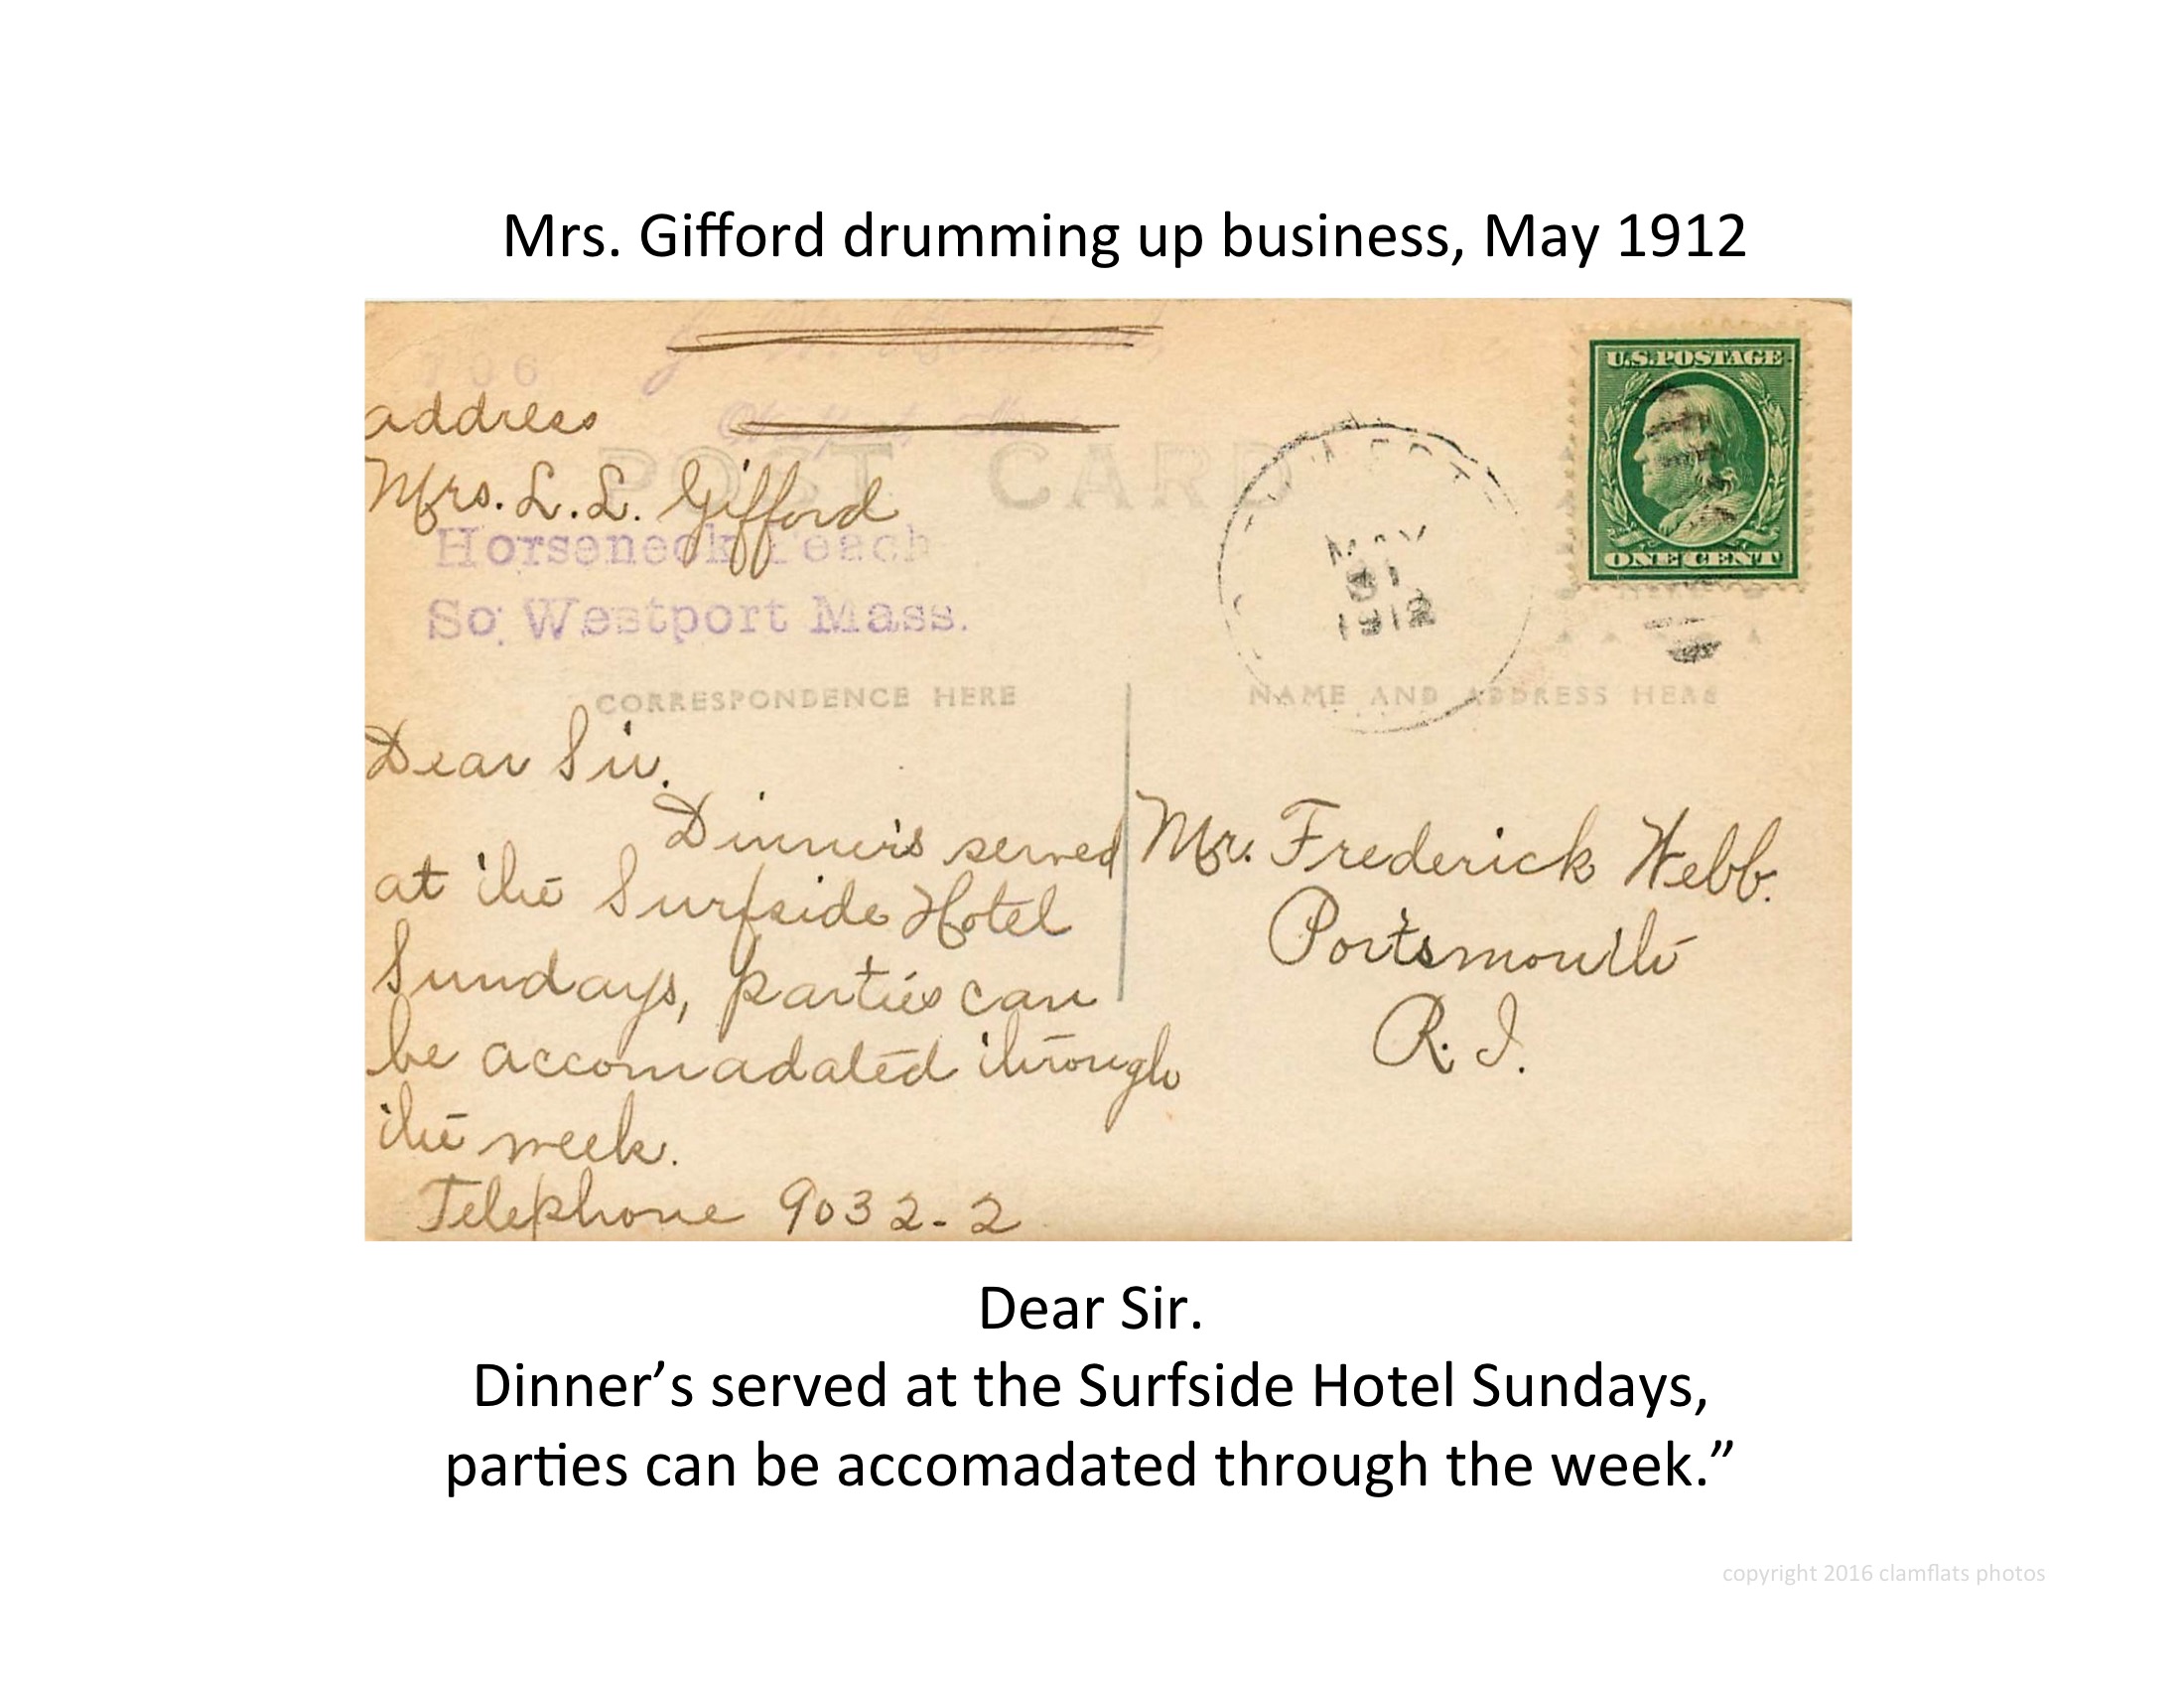 Mrs. Gifford drumming up business, May 1912
706
U.S. POSTAGE
address
POST CARD
Mrs. L. L. Gifford
Horseneck Beach
So. Westport Mass.
MAY
31
1912
ONE CENT
CORRESPONDENCE HERE
NAME AND ADDRESS HERE
Dear Sir.
Dinner's served
at the Surfside Hotel
Sundays, parties can
be accomadated through
the week.
Telephone 9032-2
Mr. Frederick Webb.
Portsmouth
R. I.
Dear Sir.
Dinner’s served at the Surfside Hotel Sundays,
parties can be accomadated through the week.”
copyright 2016 clamflats photos